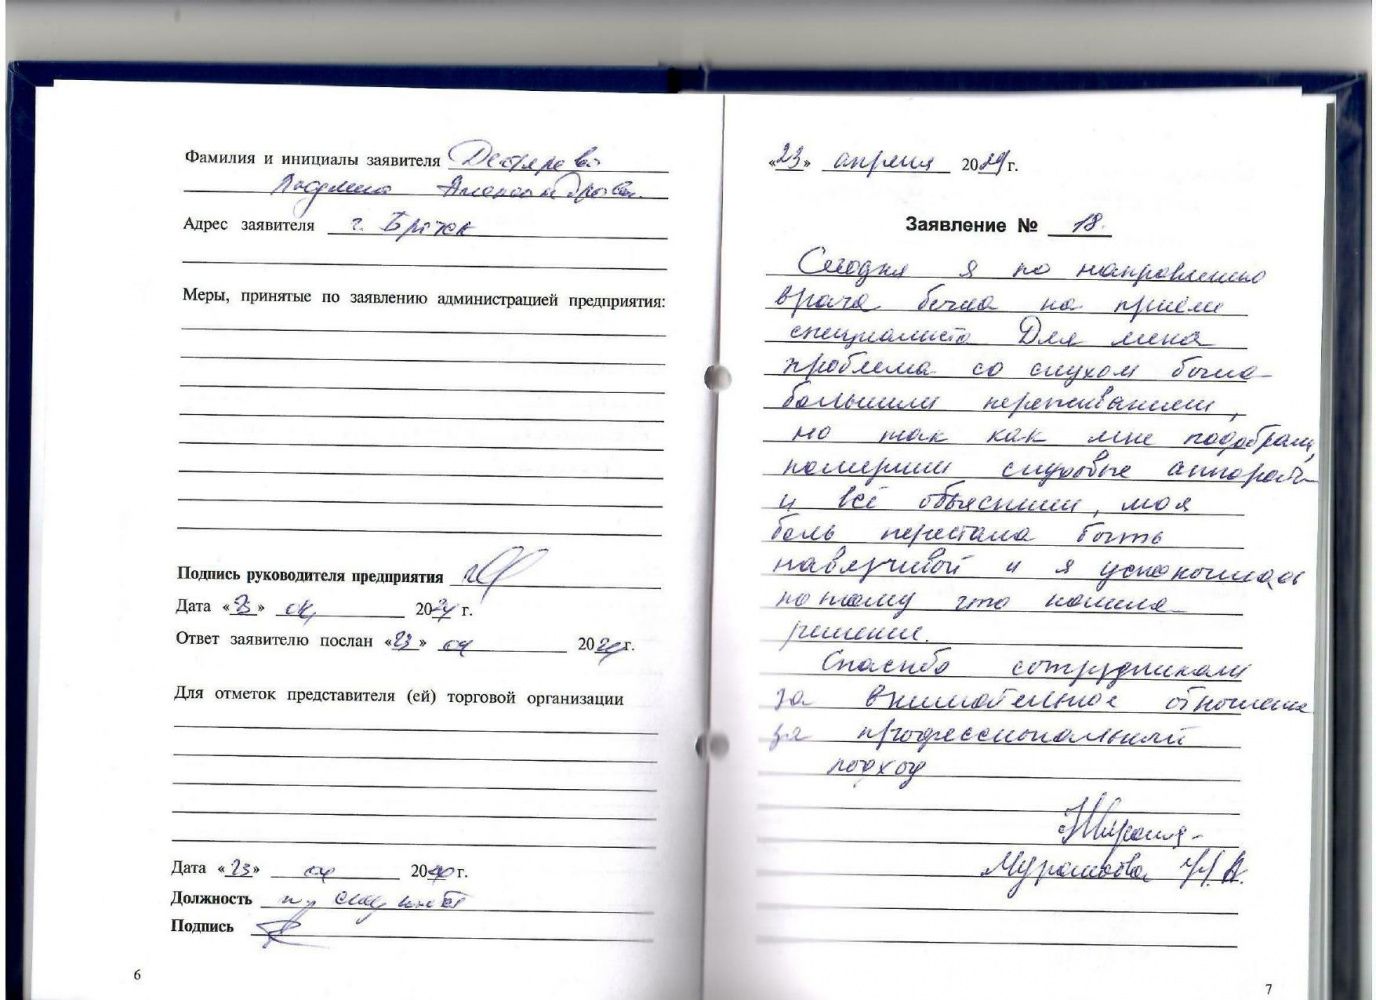 Фамилия и инициалы заявителя Дегтярева
Людмила Александровна
Адрес заявителя г. Братск
Меры, принятые по заявлению администрацией предприятия:
Подпись руководителя предприятия
Дата «23» 04 2024 г.
Ответ заявителю послан «23» 04 2024 г.
Для отметок представителя (ей) торговой организации
Дата «23» 04 20 г.
Должность
Подпись
6
«23» апреля 2024 г.
Заявление № 18.
Сегодня я по направлению
врача была на приеме
специалиста Для меня
проблема со слухом была
большими переживанием,
но так как мне подобрали,
померили слуховые аппараты
и всё объяснили, моя
боль перестала быть
навязчивой и я успокоилась
потому что нашла
решение.
Спасибо сотрудникам
за внимательное отношение
за профессиональный
подход
Израиля-
Мурашова Н.А.
7